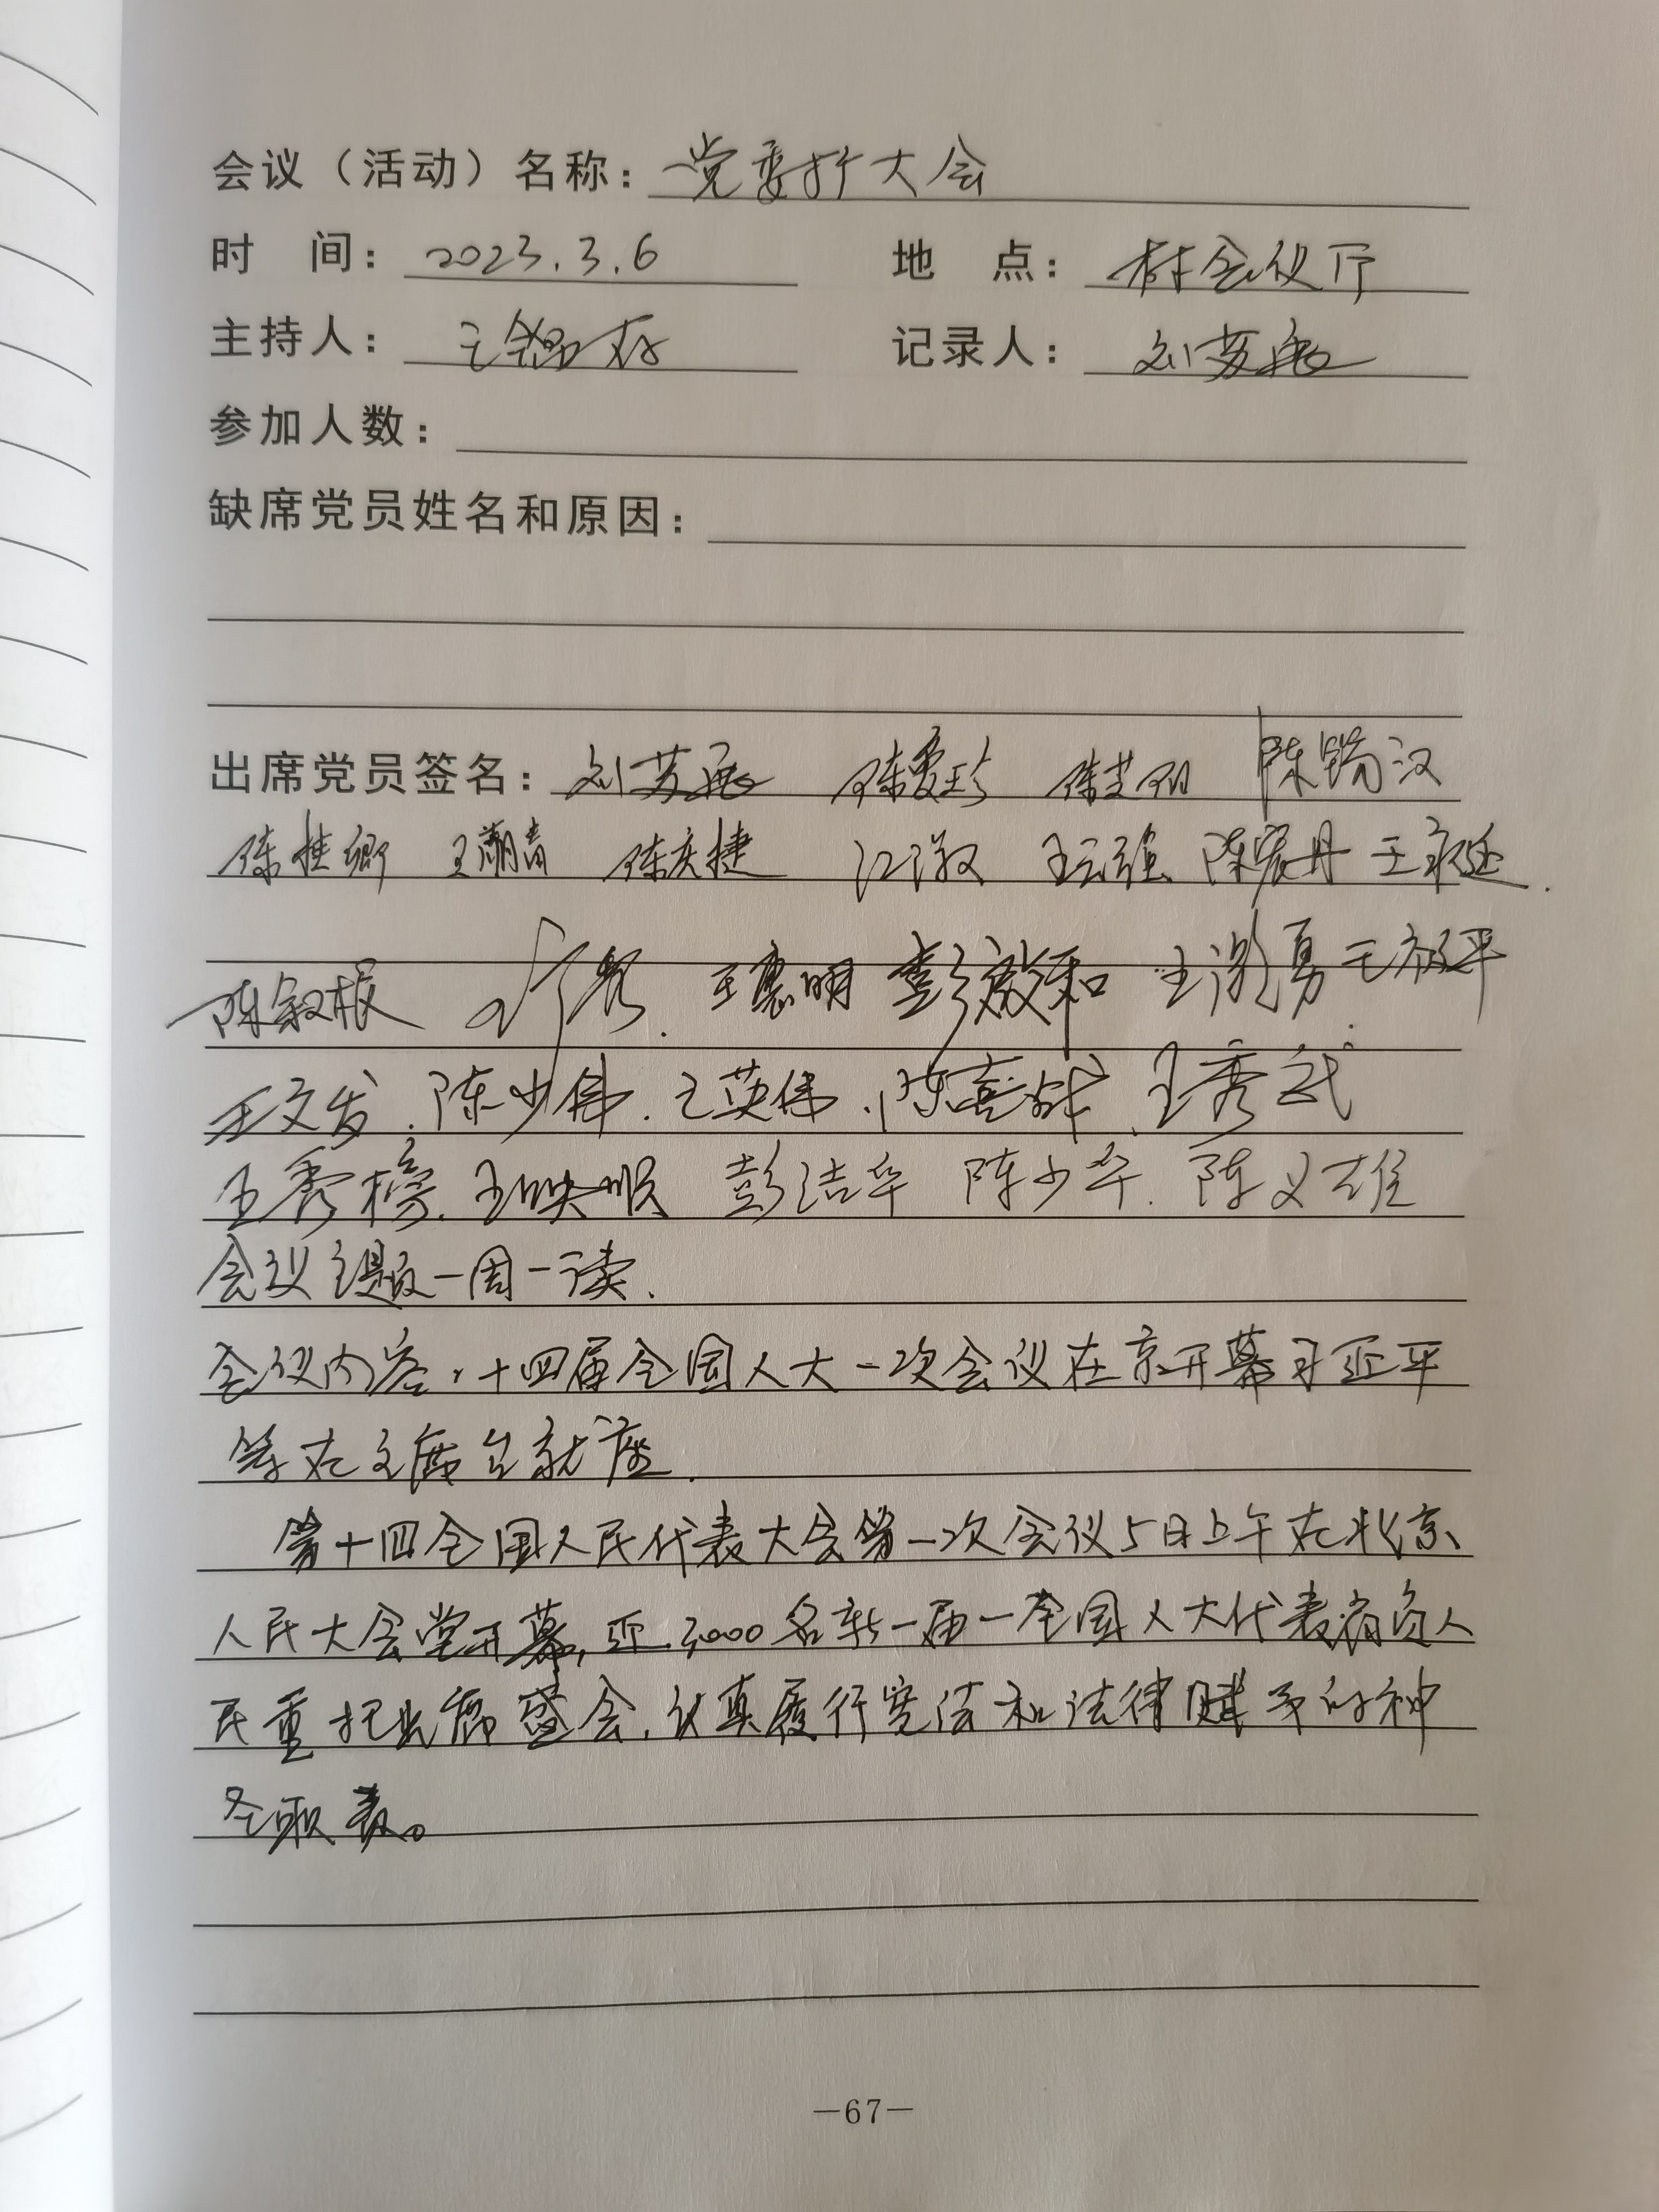 会议（活动）名称：党委扩大会
时 间：2023.3.6 地 点：村会议厅
主持人：王锡存 记录人：刘芳
参加人数：
缺席党员姓名和原因：
出席党员签名：刘芳 陈爱珍 陈 陈锡汉
陈桂卿 王潮青 陈庆捷 江 王云强 陈宏丹 王永延.
陈叙根 王惠明 彭 和 王 勇 王 平
王文发.陈少伟.王英伟.陈喜 王秀武
王秀榜.王映顺 彭洁华 陈少华.陈义雄
会议主题一周一读.
会议内容.十四届全国人大一次会议在京开幕习近平
等在主席台就座.
第十四全国人民代表大会第一次会议5日上午在北京
人民大会堂开幕,近3000名新一届一全国人大代表肩负人
民重托出席盛会.认真履行宪法和法律赋予的神
圣职责。
—67—